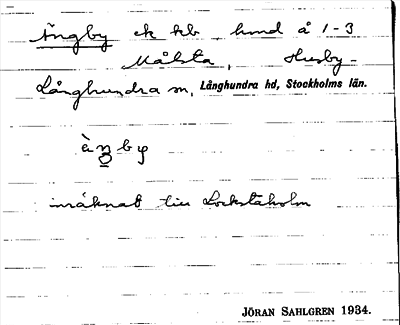 Ängby ek kb hmd å 1-3
Målsta, Husby-
Långhundra sn, Långhundra hd, Stockholms län.
äŋby
inräknat till Lockstaholm
JÖRAN SAHLGREN 1934.